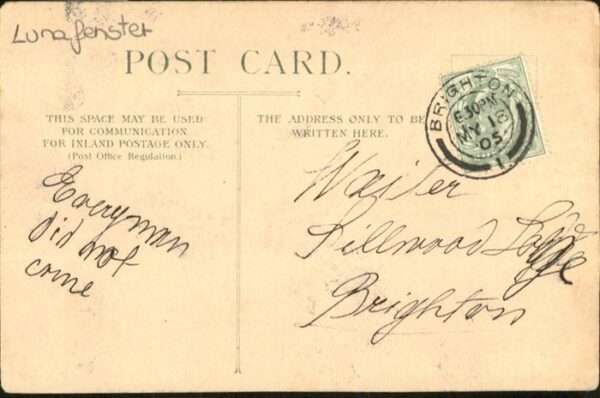 Lunafenster
POST CARD.
THIS SPACE MAY BE USED
FOR COMMUNICATION
FOR INLAND POSTAGE ONLY.
(Post Office Regulation.)
THE ADDRESS ONLY TO BE
WRITTEN HERE.
BRIGHTON
6.30PM
MY 18
05
1
Everyman
did not
come
Waiter
Sillwood
Brighton